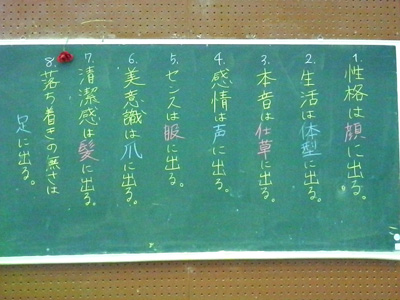 1.性格は顔に出る。
2.生活は体型に出る。
3.本音は仕草に出る。
4.感情は声に出る。
5.センスは服に出る。
6.美意識は爪に出る。
7.清潔感は髪に出る。
8.落ち着きの無さは
足に出る。